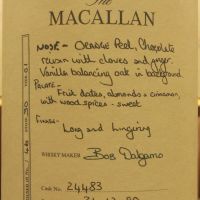 The
MACALLAN
NOSE - ORANGE Peel, Chocolate
raisin with cloves and ginger.
Vanilla balancing oak in background
PALATE -
Fruit dates, almonds & cinnamon,
with wood spices - sweet
FINISH -
Long and lingering
WHISKY MAKER Bob Dalgarno
Cask No. 24483